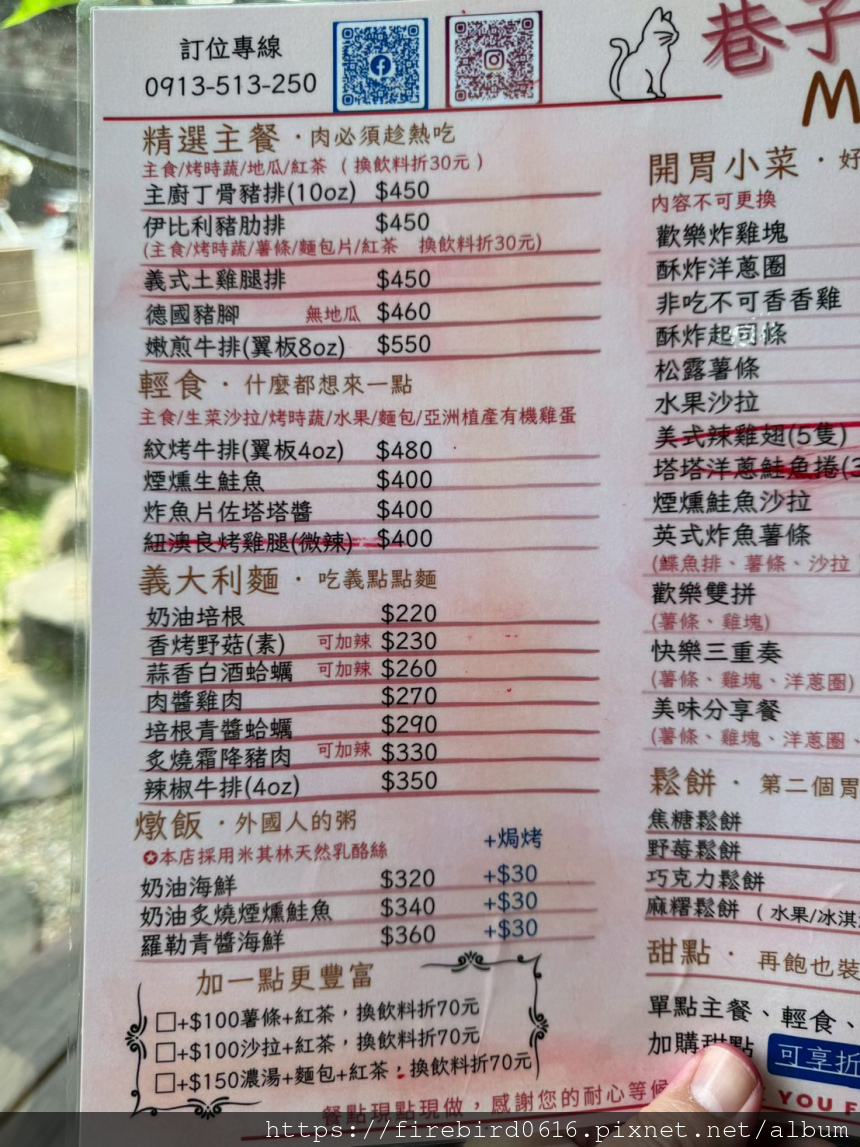 訂位專線
0913-513-250
巷子
M
精選主餐·肉必須趁熱吃
主食/烤時蔬/地瓜/紅茶 ( 換飲料折30元 )
主廚丁骨豬排(10oz) $450
伊比利豬肋排 $450
(主食/烤時蔬/薯條/麵包片/紅茶 換飲料折30元)
義式土雞腿排 $450
德國豬腳 無地瓜 $460
嫩煎牛排(翼板8oz) $550
輕食·什麼都想來一點
主食/生菜沙拉/烤時蔬/水果/麵包/亞洲植產有機雞蛋
紋烤牛排(翼板4oz) $480
煙燻生鮭魚 $400
炸魚片佐塔塔醬 $400
紐澳良烤雞腿(微辣) $400
義大利麵·吃義點點麵
奶油培根 $220
香烤野菇(素) 可加辣 $230
蒜香白酒蛤蠣 可加辣 $260
肉醬雞肉 $270
培根青醬蛤蠣 $290
炙燒霜降豬肉 可加辣 $330
辣椒牛排(4oz) $350
燉飯·外國人的粥
✪本店採用米其林天然乳酪絲 +焗烤
奶油海鮮 $320 +$30
奶油炙燒煙燻鮭魚 $340 +$30
羅勒青醬海鮮 $360 +$30
加一點更豐富
□+$100薯條+紅茶，換飲料折70元
□+$100沙拉+紅茶，換飲料折70元
□+$150濃湯+麵包+紅茶，換飲料折70元
開胃小菜·好
內容不可更換
歡樂炸雞塊
酥炸洋蔥圈
非吃不可香香雞
酥炸起司條
松露薯條
水果沙拉
美式辣雞翅(5隻)
塔塔洋蔥鮭魚捲(3
煙燻鮭魚沙拉
英式炸魚薯條
(鰈魚排、薯條、沙拉
歡樂雙拼
(薯條、雞塊)
快樂三重奏
(薯條、雞塊、洋蔥圈)
美味分享餐
(薯條、雞塊、洋蔥圈、
鬆餅·第二個胃
焦糖鬆餅
野莓鬆餅
巧克力鬆餅
麻糬鬆餅 ( 水果/冰淇
甜點·再飽也裝
單點主餐、輕食、
加購甜點 可享折
餐點現點現做，感謝您的耐心等候 YOU F
https://firebird0616.pixnet.net/album